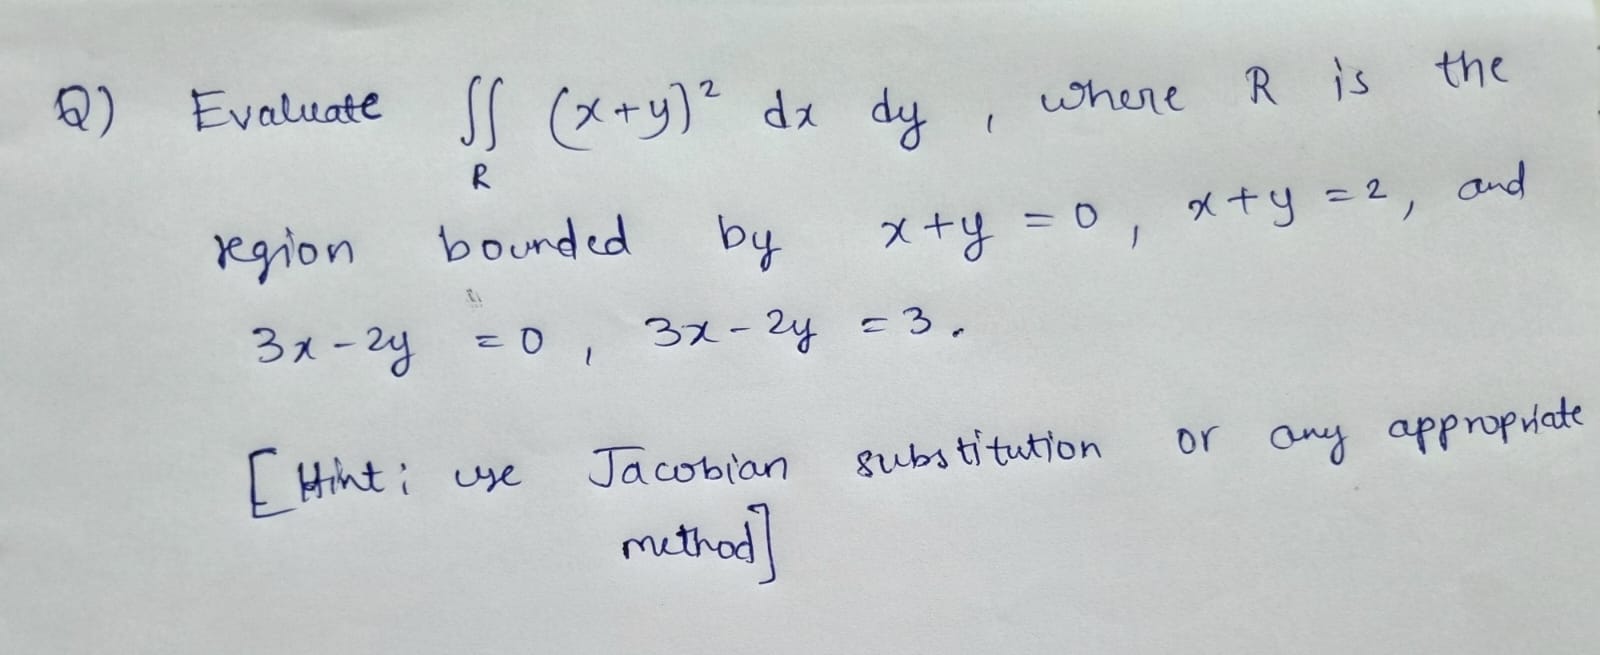 Q) Evaluate ∬ (x+y)² dx dy , where R is the
R
region bounded by x+y = 0 , x+y = 2, and
3x - 2y = 0 , 3x - 2y = 3.
[Hint: use Jacobian substitution or any appropriate
method]